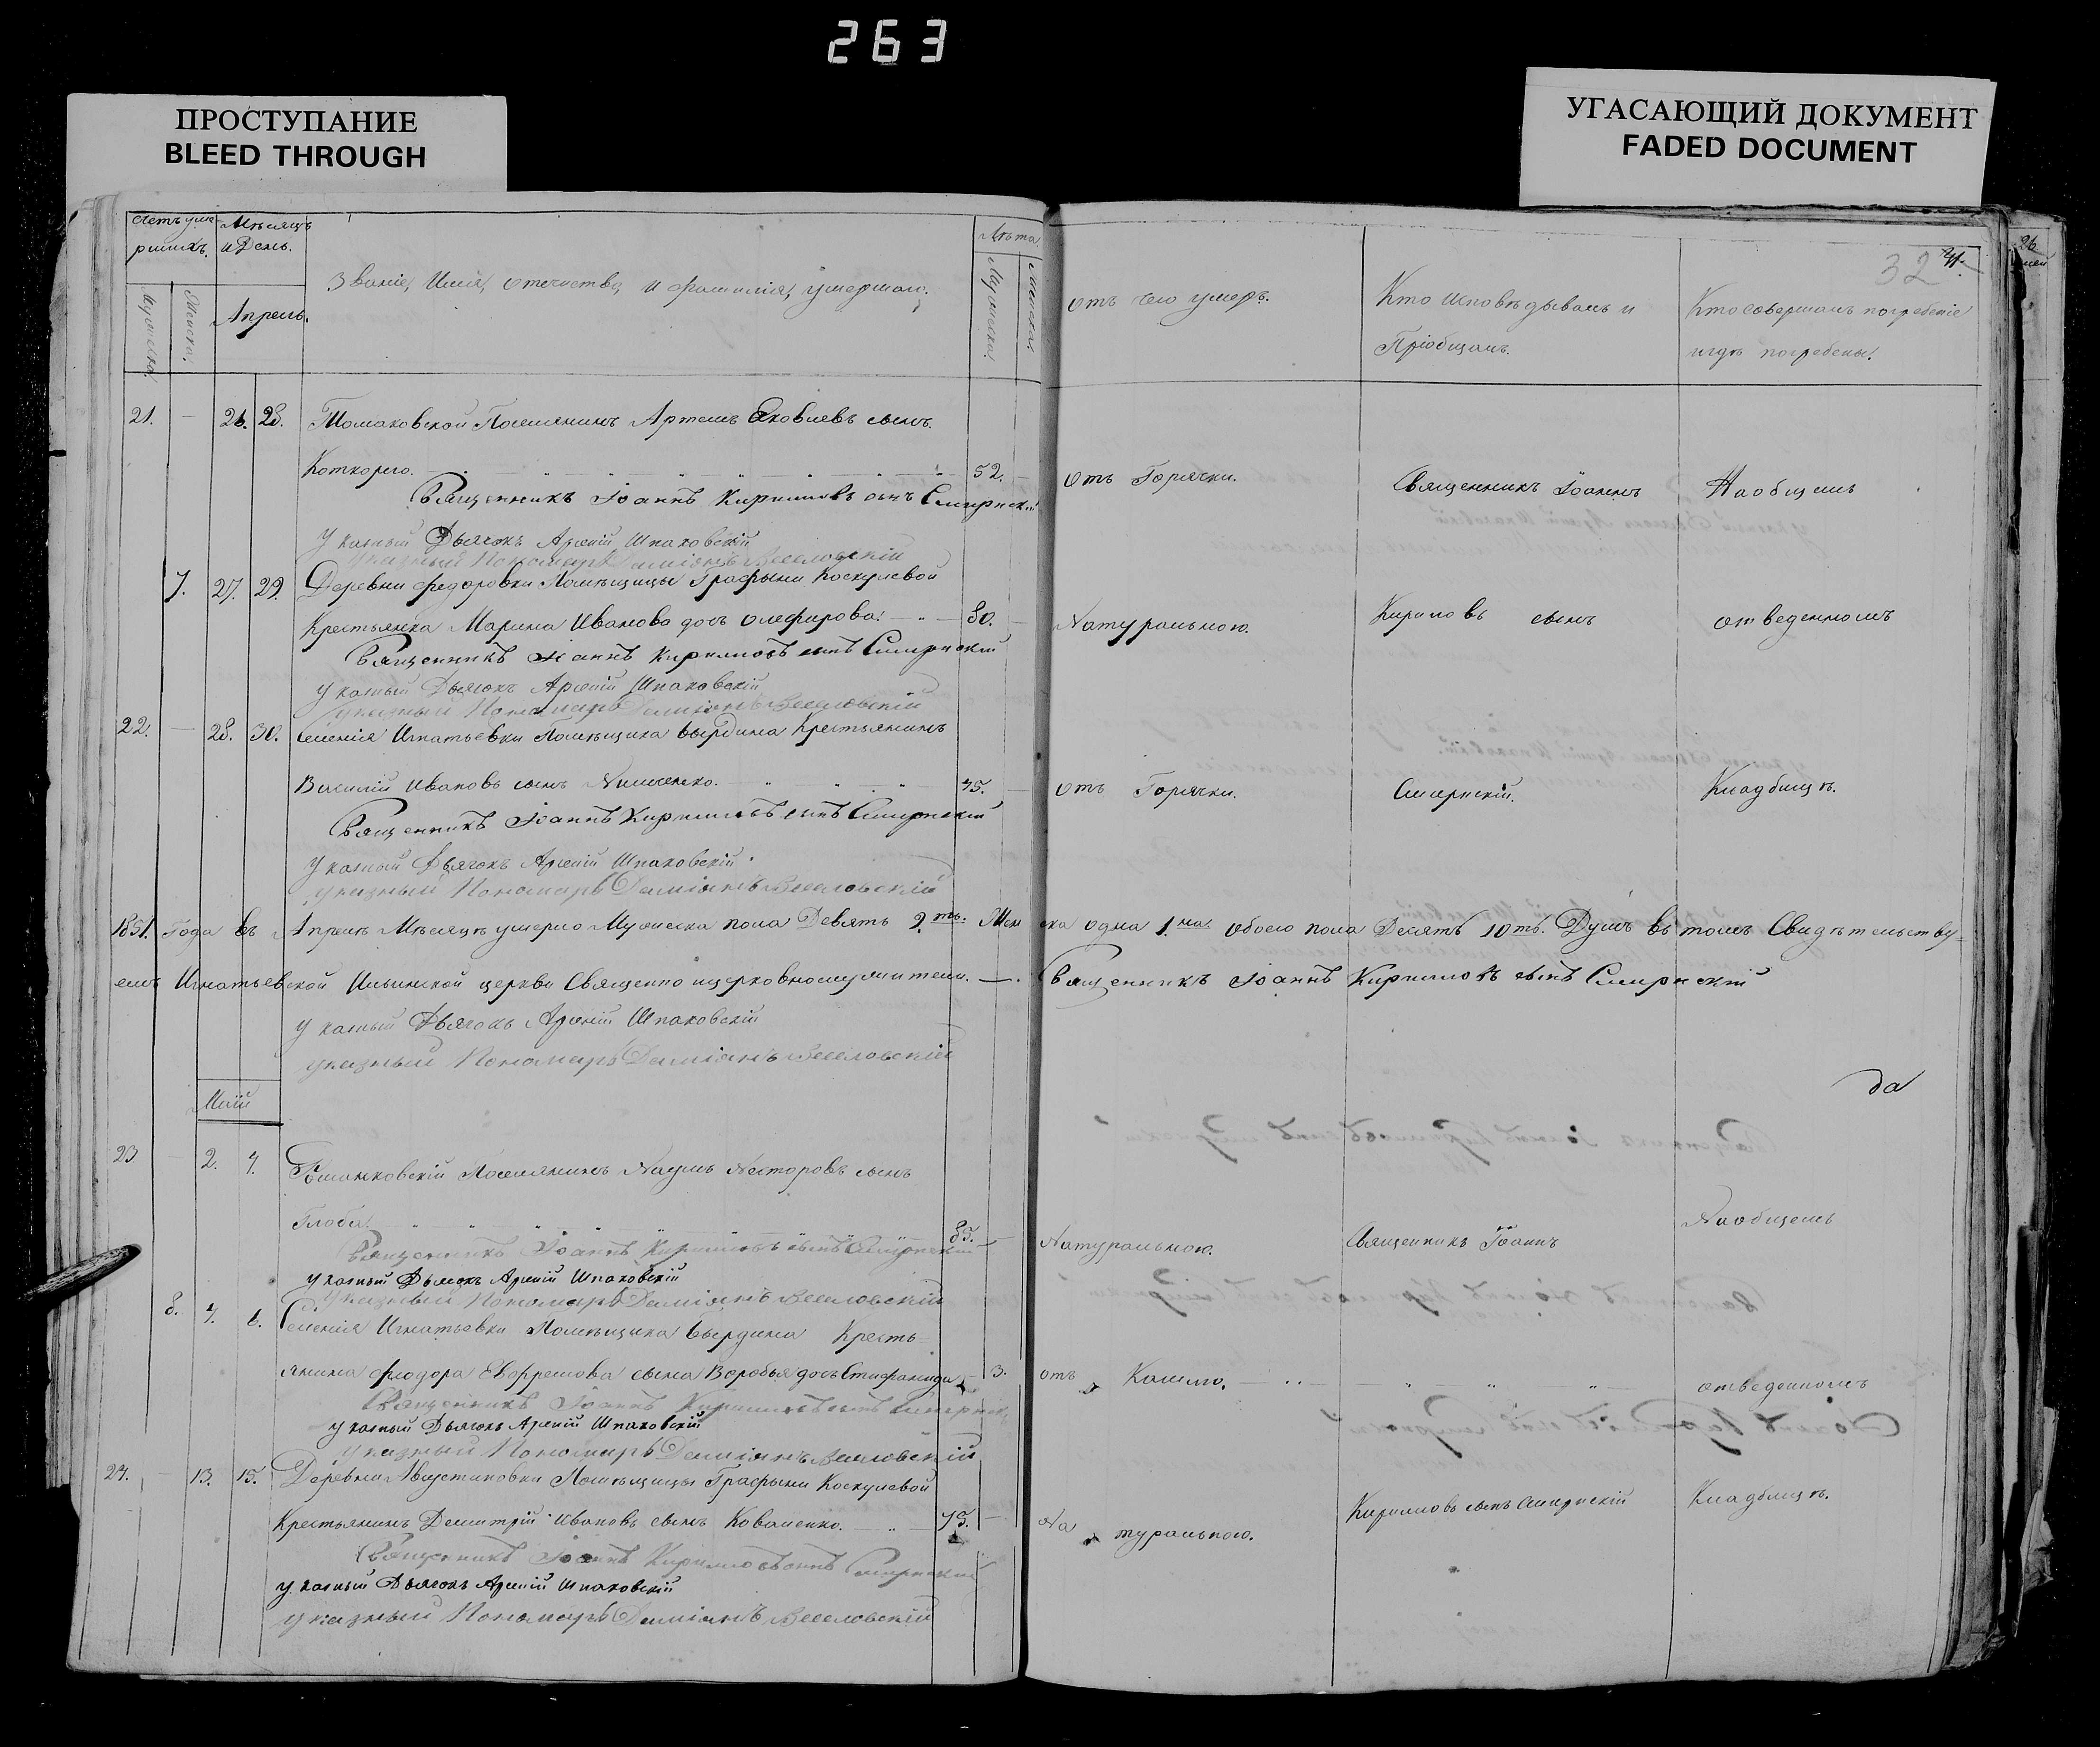 263
ПРОСТУПАНИЕ
BLEED THROUGH
УГАСАЮЩИЙ ДОКУМЕНТ
FADED DOCUMENT
Счетъ уме Мѣсяцъ Лѣта
ршихъ. и День.
Мужеска. Женска. Апрель. Званіе, Имя, отечество, и фамилія, умершаго. Мужеска. Женска.
отъ чего умеръ. Кто Исповѣдывалъ и Пріобщалъ. Кто Совершалъ погребеніе и гдѣ погребены.
32
21. — 26. 28. Томаковской Поселянинъ Артемъ Яковлевъ сынъ
52. отъ Горячки. Священникъ Іоаннъ На общемъ
Священникъ Іоаннъ Кирилловъ сынъ Смирнскій
Указный Дьячокъ Арсеній Шпаковскій
указный Пономарь Даміанъ Веселовскій
7. 27. 29. Деревни Федоровки Помѣщицы Графыни
Крестьянка Марина Иванова дочь Олефирова. 80. Натуральною. Кириловъ сынъ отведенномъ
Священникъ Іоаннъ Кирилловъ сынъ Смирнскій
Указный Дьячокъ Арсеній Шпаковскій
указный Пономарь Даміанъ Веселовскій
22. — 28. 30. Селенія Игнатьевки Помѣщика Крестьянинъ
Василій Ивановъ сынъ 45. отъ Горячки. Смирнскій. Кладбищѣ.
Священникъ Іоаннъ Кирилловъ сынъ Смирнскій
Указный Дьячокъ Арсеній Шпаковскій
указный Пономарь Даміанъ Веселовскій
1851. Года въ Апрелѣ Мѣсяцѣ умерло Мужеска пола Девять 9.ть. Женска одна 1.на обоего пола Десять 10ть. Душъ въ томъ Свидѣтельству-
емъ Игнатьевской Ильинской церкви Священно и церковнослужители. — Священникъ Іоаннъ Кирилловъ сынъ Смирнскій
Указный Дьячокъ Арсеній Шпаковскій
указный Пономарь Даміанъ Веселовскій
да
Маій
23 — 2. 4. Поселянинъ Наумъ Несторовъ сынъ
Глоба. 85. Натуральною. Священникъ Іоаннъ На общемъ
Священникъ Іоаннъ Кирилловъ сынъ Смирнскій
Указный Дьячокъ Арсеній Шпаковскій
Указный Пономарь Даміанъ Веселовскій
8. 4. 6. Селенія Игнатьевки Помѣщика Кресть-
янина Федора сына Воробья дочь 3. отъ Кашлю. отведенномъ
Священникъ Іоаннъ Кирилловъ сынъ Смирнск
Указный Дьячокъ Арсеній Шпаковскій
указный Пономарь Даміанъ Веселовскій
24. — 13. 15. Деревни Августиновки Помѣщицы Графыни
Крестьянинъ Дмитрій Ивановъ сынъ Коваленко. 75. — Натуральною. Кирилловъ сынъ Смирнскій Кладбищѣ.
Священникъ Іоаннъ Кирилловъ сынъ Смирнскій
Указный Дьячокъ Арсеній Шпаковскій
указный Пономарь Даміанъ Веселовскій